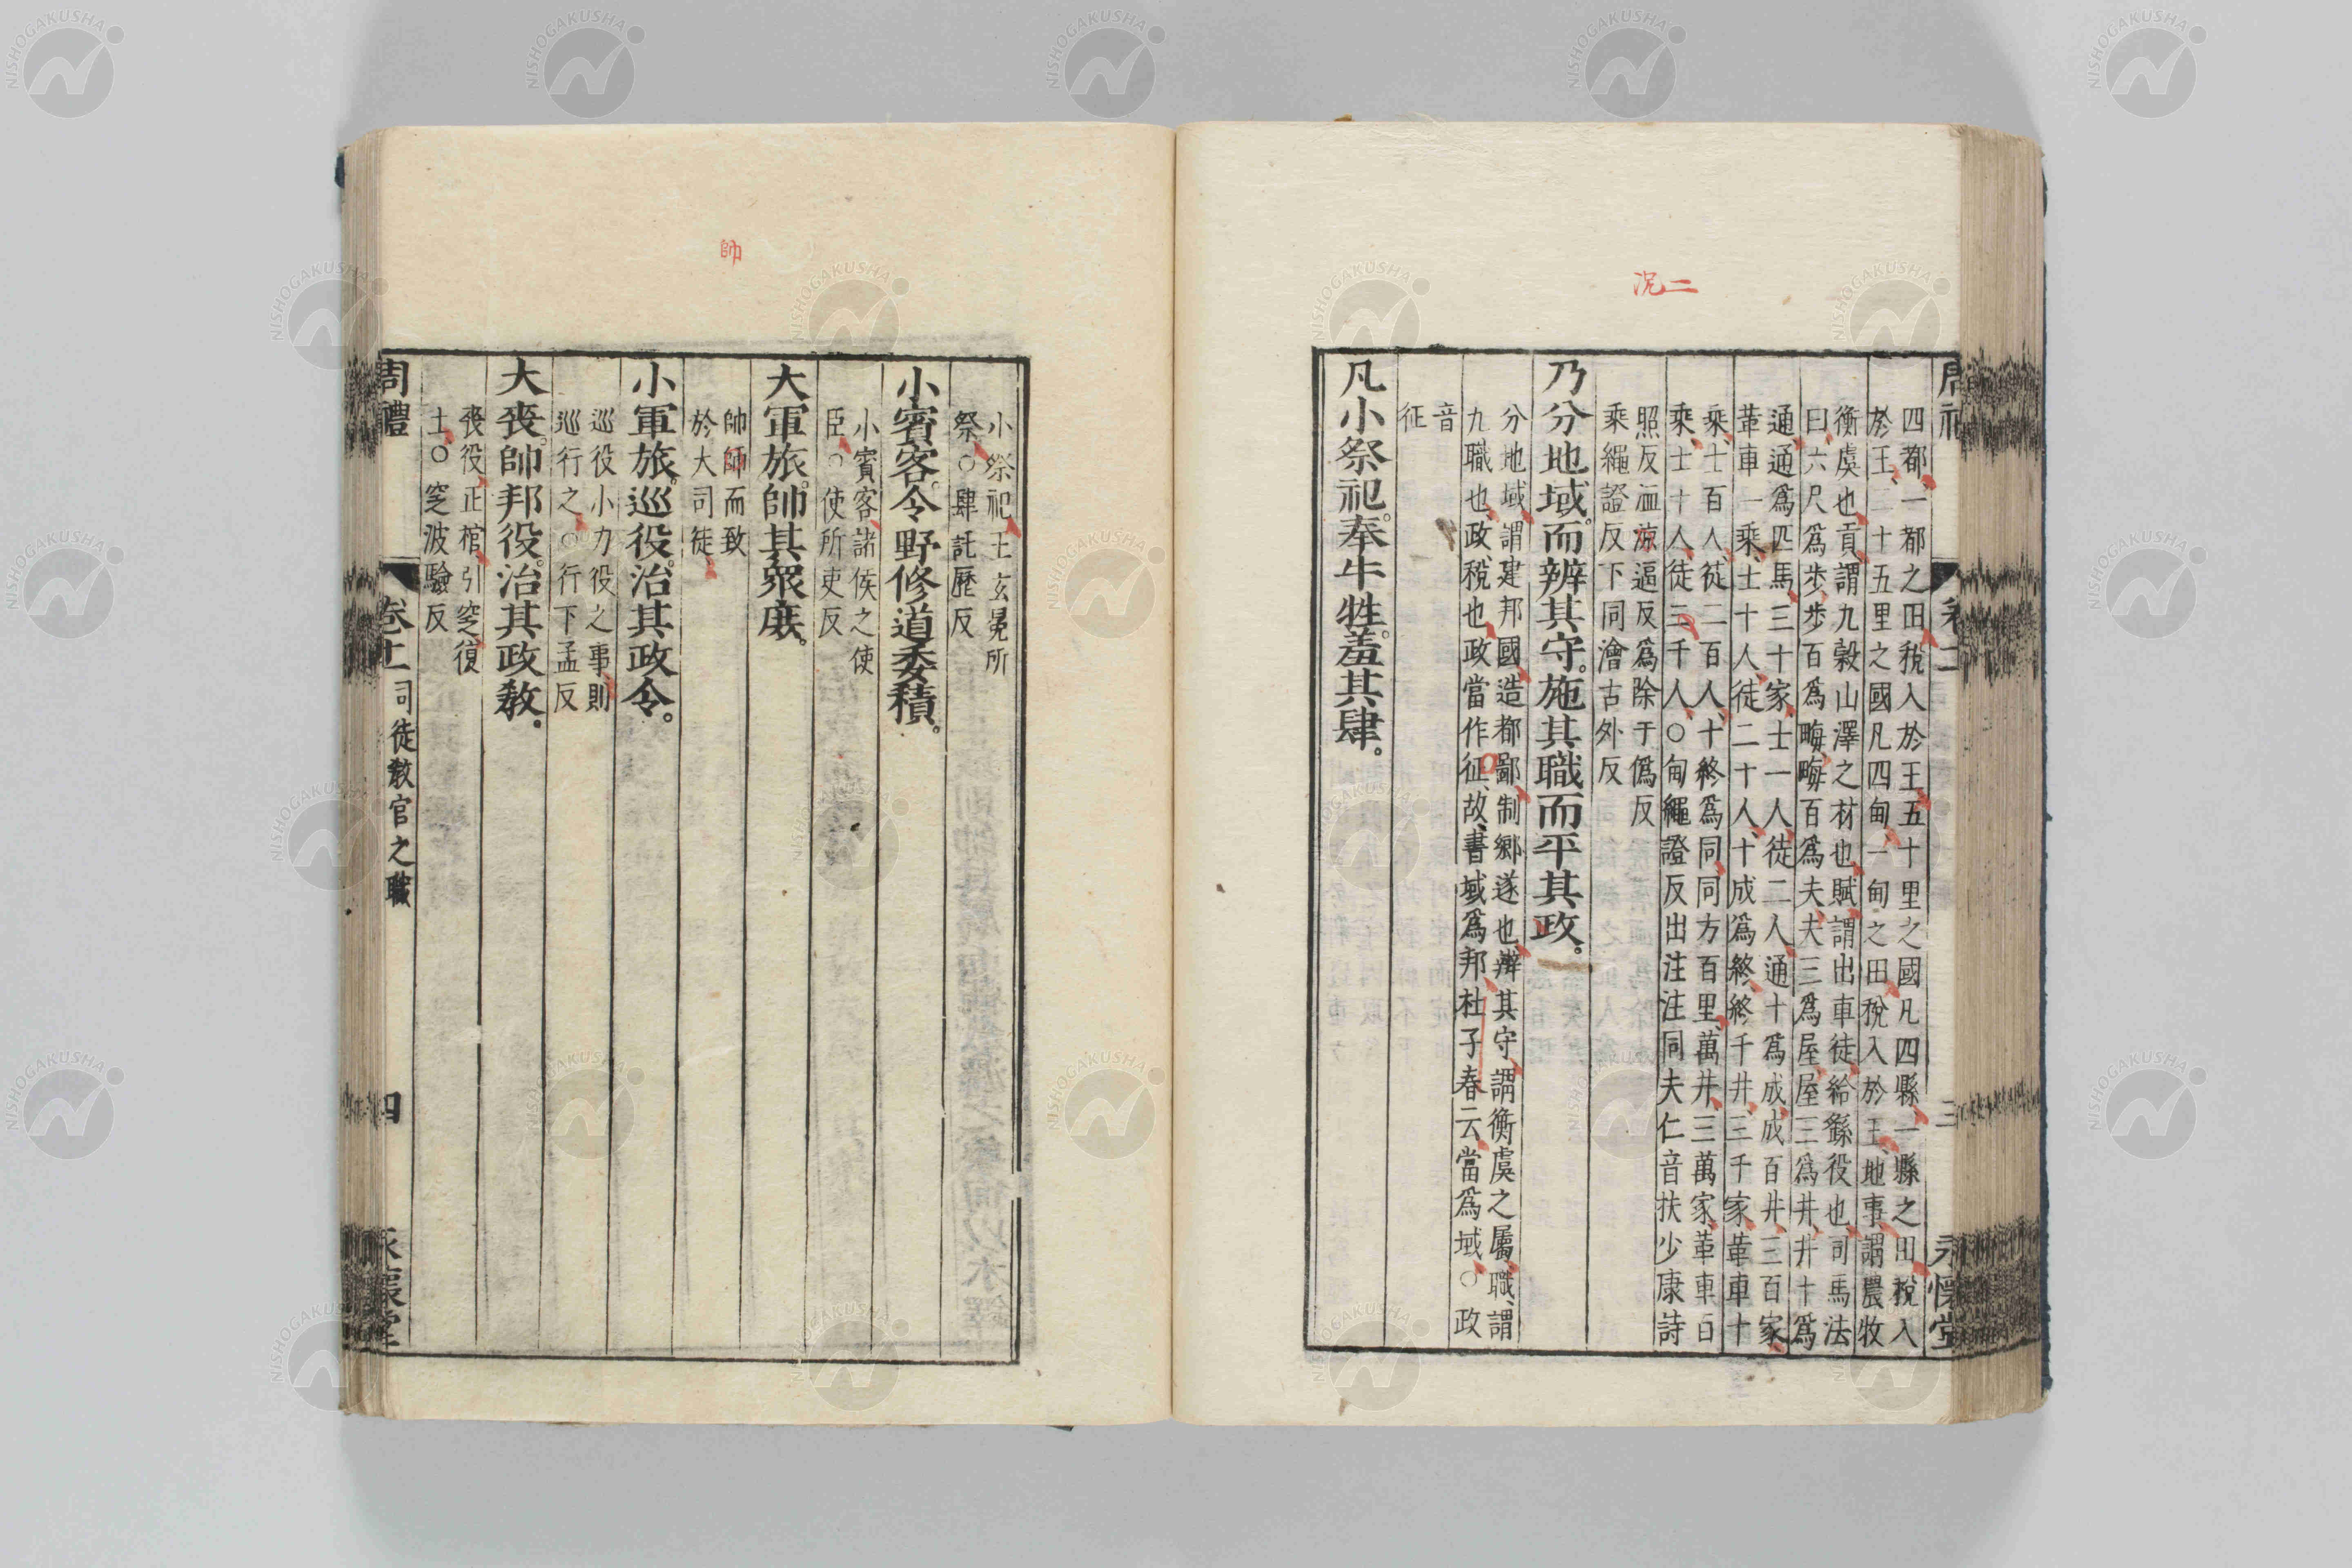 況二
四都一都之田稅入於王五十里之國凡四縣一縣之田稅入
於王二十五里之國凡四甸一甸之田稅入於王地事謂農牧
衡虞也貢謂九穀山澤之材也賦謂出車徒給繇役也司馬法
曰六尺爲步步百爲畮畮百爲夫夫三爲屋屋三爲井井十爲
通通爲匹馬三十家士一人徒二人通十爲成成百井三百家
革車一乘士十人徒二十人十成爲終終千井三千家革車十
乘士百人徒二百人十終爲同同方百里萬井三萬家革車百
乘士千人徒二千人○甸繩證反出注注同夫仁音扶少康詩
照反洫況逼反爲除于僞反
乘繩證反下同澮古外反
乃分地域。而辨其守。施其職而平其政。
分地域謂建邦國造都鄙制鄉遂也辨其守謂衡虞之屬職謂
九職也政稅也政當作征故書域爲邦杜子春云當爲域○政
音
征
凡小祭祀。奉牛牲。羞其肆。
周禮 卷二 三 永懷堂
帥
小祭祀王玄冕所
祭○肆託歷反
小賓客。令野修道委積。
小賓客諸侯之使
臣○使所吏反
大軍旅。帥其眾庶。
帥師而致
於大司徒
小軍旅。巡役。治其政令。
巡役小力役之事則
巡行之○行下孟反
大喪。帥邦役。治其政教。
喪役正棺引窆復
土○窆波驗反
周禮 卷二 司徒敎官之職 四 永懷堂
NISHOGAKUSHA